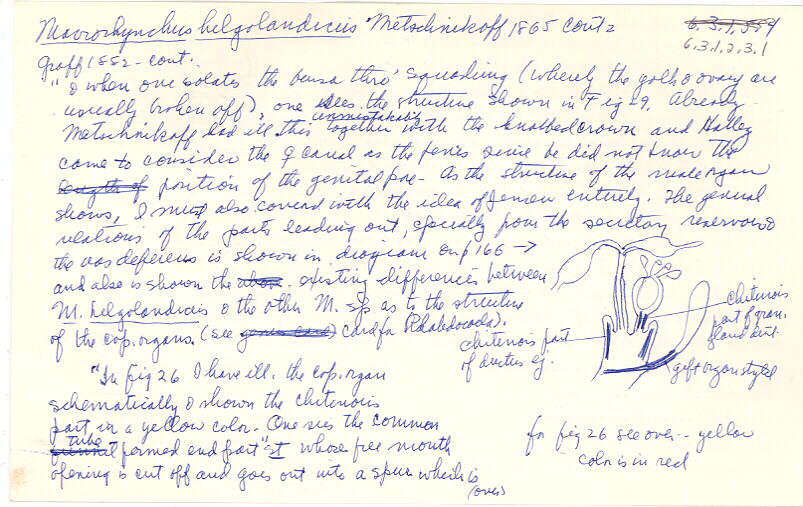 Macrorhynchus helgolandicus Metschnikoff 1865 cont 2
6.3.1.
6.3.1.2.3.1
Graff 1882 - cont.
"& when one isolates the bursa thro' squashing (whereby the ♀ are
usually broken off), one sees the structure shown in Fig 29. Already
unmistakably
Metschnikoff had ill. this together with the knobbed crown and Hallez
came to consider the ♀ canal as the penis since he did not know the
length of position of the genital pore - As the structure of the male organ
shows, I must also coincide with the idea of Jensen entirely. The general
relations of the parts leading out, specially from the secretory reservoir &
the vas deferens is shown in diagram on p 166 →
and also is shown the existing differences between
M. helgolandicus & the other M. sp as to the structure
of the cop. organs. (see card for Rhabdocoela).
chitinous part
of ductus ej.
chitinous
part of gran.
gland duct.
gift organ stylet
"In fig 26 I have ill. the cop. organ
schematically & shown the chitinous
part in a yellow color. One sees the common
tube
formed end part "st whose free mouth
opening is cut off and goes out into a spur which is
(over)
for fig 26 see over -- yellow
color is in red